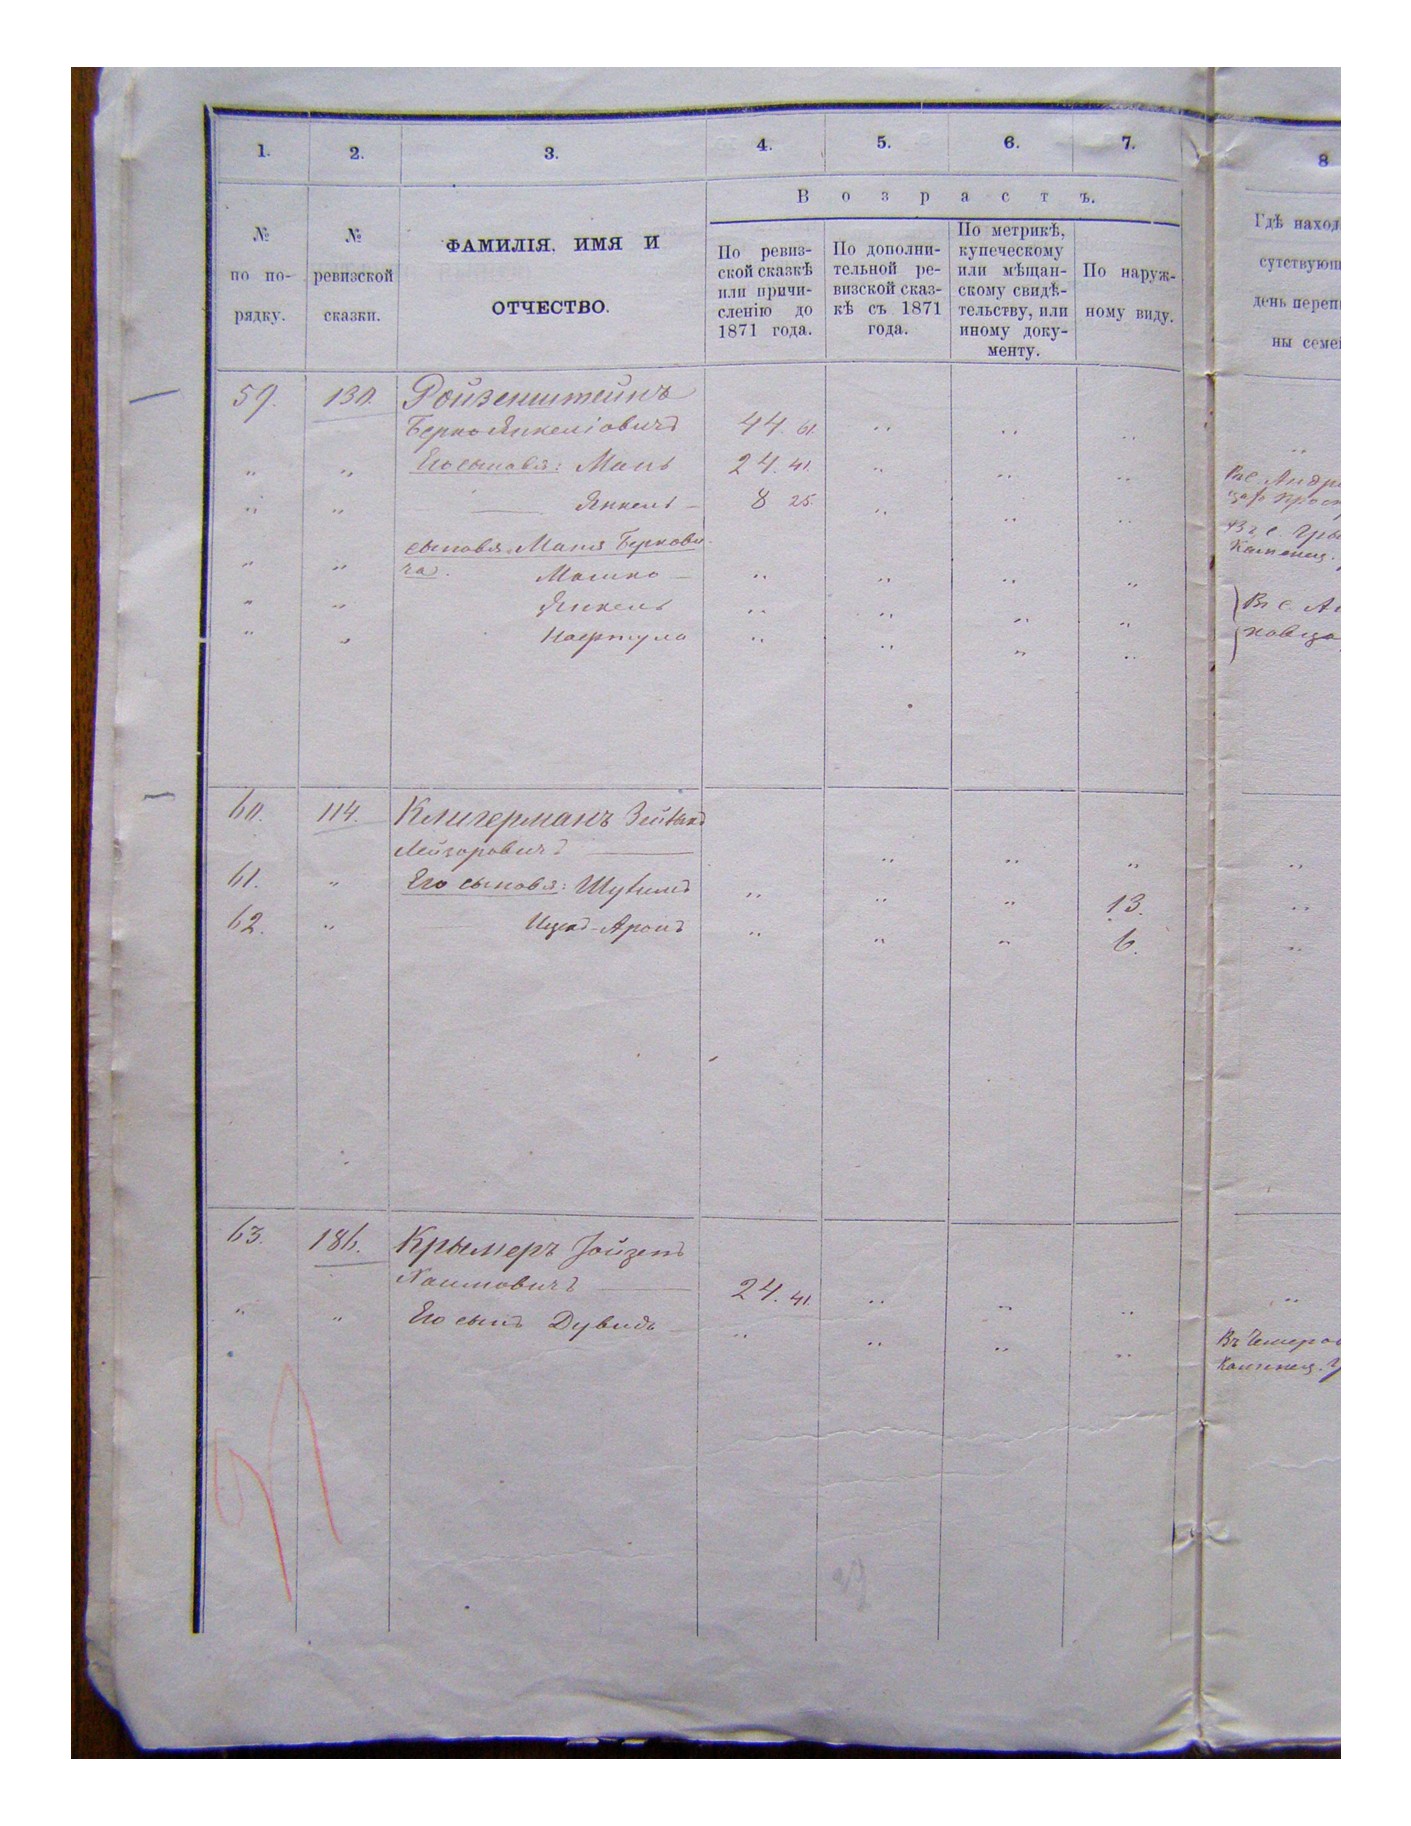 1. 2. 3. 4. 5. 6. 7. 8
Возрастъ.
№ по порядку.
№ ревизской сказки.
ФАМИЛІЯ, ИМЯ И
ОТЧЕСТВО.
По ревиз-
ской сказкѣ
или причи-
сленію до
1871 года.
По дополни-
тельной ре-
визской сказ-
кѣ съ 1871
года.
По метрикѣ,
купеческому
или мѣщан-
скому свидѣ-
тельству, или
иному доку-
менту.
По наруж-
ному виду.
Гдѣ наход
сутствующ
день переп
ны семей
59. 130. Ройзенштейнъ
Берко Янкеліовичъ 44. 61. „ „ „ „
„ „ Его сыновя: Мань 24. 41. „ „ „
Въ с. Андр
„ „ Янкель 8 25. „ „ „
Въ с.
Каменец.
сыновя Маня Беркови
„ „ ча. Мошко „ „ „ „
„ „ Янкель „ „ „ „
Въ с. Ан
„ „ „ „ „ „
ковца
60. 114. Клигерманъ
Лейзоровичъ „ „ „ „
61. „ Его сыновя: „ „ „ 13.
„
62. „ Ицекъ-Аронъ „ „ „ 6.
„
63. 186. Крымеръ
Хаимовичъ 24. 41. „ „ „ „
„ „ Его сынъ Дувидъ „ „ „ „
Въ Чемеров
Каменец. у